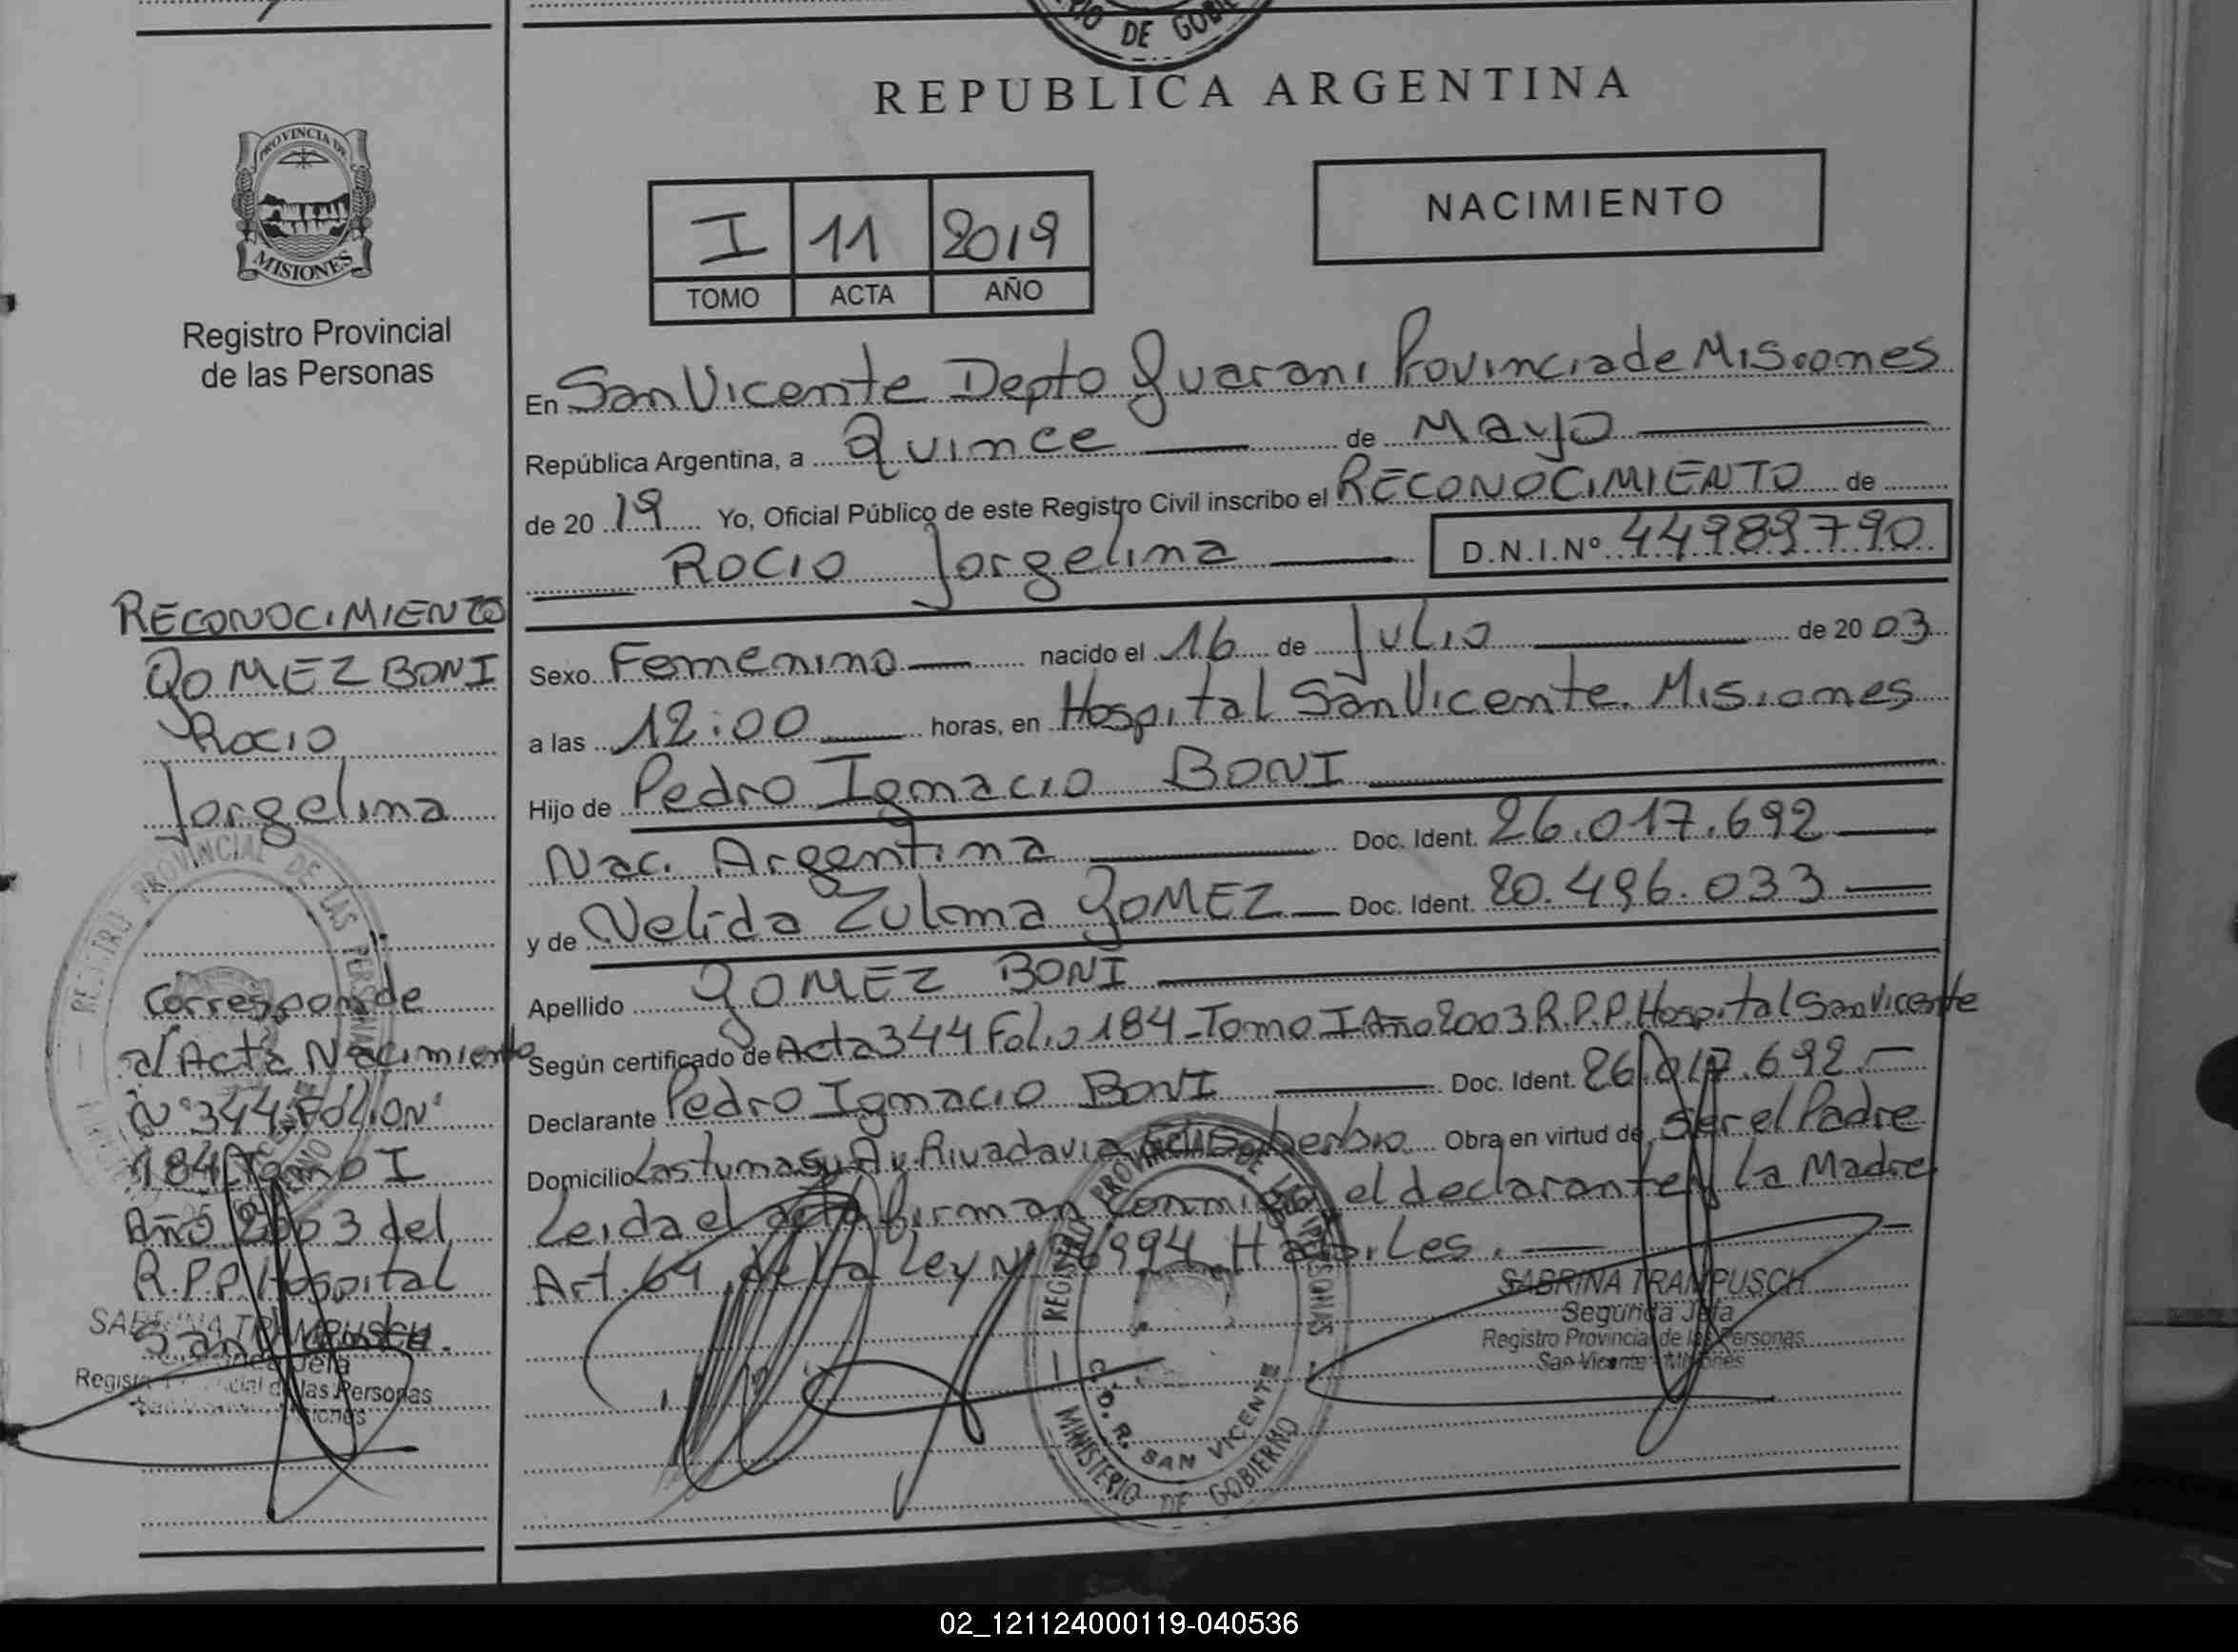 DE GOBIE
REPUBLICA ARGENTINA
PROVINCIA DE
MISIONES
Registro Provincial
de las Personas
I 11 2019
TOMO ACTA AÑO
NACIMIENTO
En San Vicente Depto Guarani Provincia de Misiones
República Argentina, a Quince de Mayo
de 2019 Yo, Oficial Público de este Registro Civil inscribo el RECONOCIMIENTO de
ROCIO Jorgelina D.N.I.Nº 44989790
Sexo Femenino nacido el 16 de Julio de 2003
a las 12:00 horas, en Hospital San Vicente. Misiones
Hijo de Pedro Ignacio BONI
Nac. Argentina Doc. Ident. 26.017.692
y de Nelida Zulma GOMEZ Doc. Ident. 20.496.033
Apellido GOMEZ BONI
Según certificado de Acta 344 Folio 184-Tomo I Año 2003 R.P.P. Hospital San Vicente
Declarante Pedro Ignacio BONI Doc. Ident. 26.017.692.-
Domicilio Las tumas y Av. Rivadavia El Soberbio Obra en virtud de Ser el Padre
Leida el acta firman conmigo el declarante y la Madre
Art. 64 de la Ley Nº 26994 Habiles.
SABRINA TRAMPUSCH
Segunda Jefa
Registro Provincial de las Personas
San Vicente - Misiones
REGISTRO PROVINCIAL DE LAS PERSONAS
C.D.R. SAN VICENTE
MINISTERIO DE GOBIERNO
RECONOCIMIENTO
GOMEZ BONI
Rocio
Jorgelina
REGISTRO PROVINCIAL DE LAS PERSONAS
Corresponde
a/ Acta Nacimiento
Nº 344 FOLIO Nº
184 Tomo I
Año 2003 del
R.P.P. Hospital
San Vicente.
SABRINA TRAMPUSCH
Segunda Jefa
Registro Provincial de las Personas
San Vicente - Misiones
02_121124000119-040536